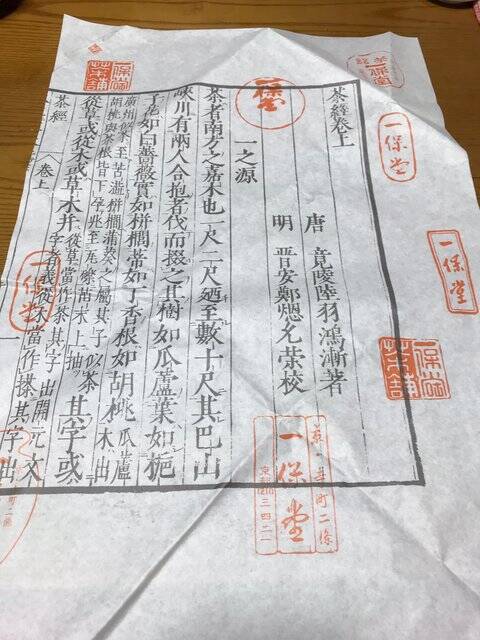 茶經卷上
唐 竟陵陸羽鴻漸著
明 晋安鄭熜允榮校
一之源
茶者南方之嘉木也一尺二尺廼至數十尺其巴山
峽川有兩人合抱者伐而掇之其樹如瓜蘆葉如梔
子花如白薔薇實如栟櫚蒂如丁香根如胡桃瓜蘆木出
廣州似茶至苦澁栟櫚蒲葵之屬其子似茶
胡桃與茶根皆下孕兆至瓦礫苗木上抽
其字或
從草或從木或草木并
從草當作茶其字出開元文
字音義從木當作搽其字出
茶經
卷上
一
一保堂
一保堂
茶舖
一保堂
一保堂
一保堂
一保堂
茶舖
京・寺町二條
一保堂
三四二一
一保堂
町二條